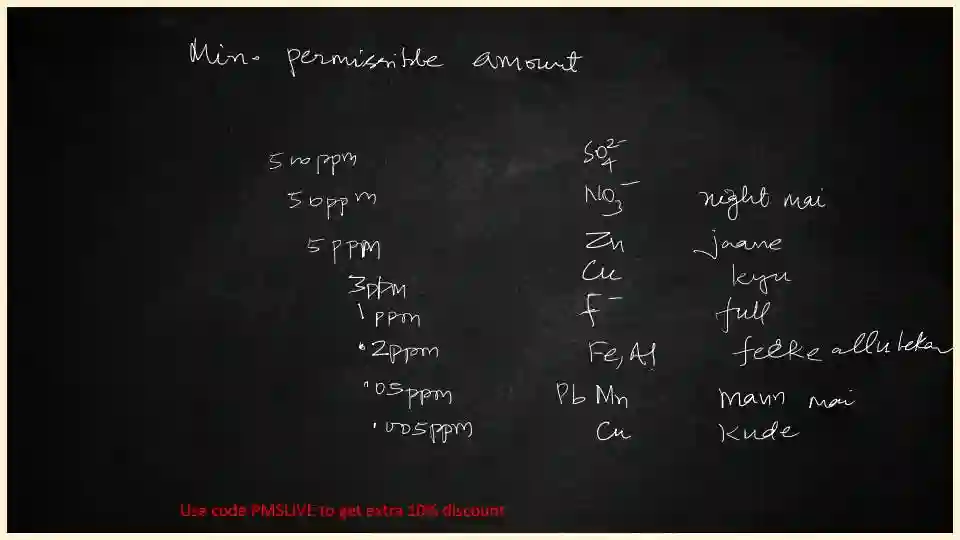 Min. permissible amount
500ppm SO₄²⁻
50ppm NO₃⁻ night mai
5 ppm Zn jaane
3ppm Cu kyu
1 ppm F⁻ full
.2ppm Fe, Al feeke allu lekar
.05ppm Pb Mn mann mai
.005ppm Cu kude
Use code PMSLIVE to get extra 10% discount